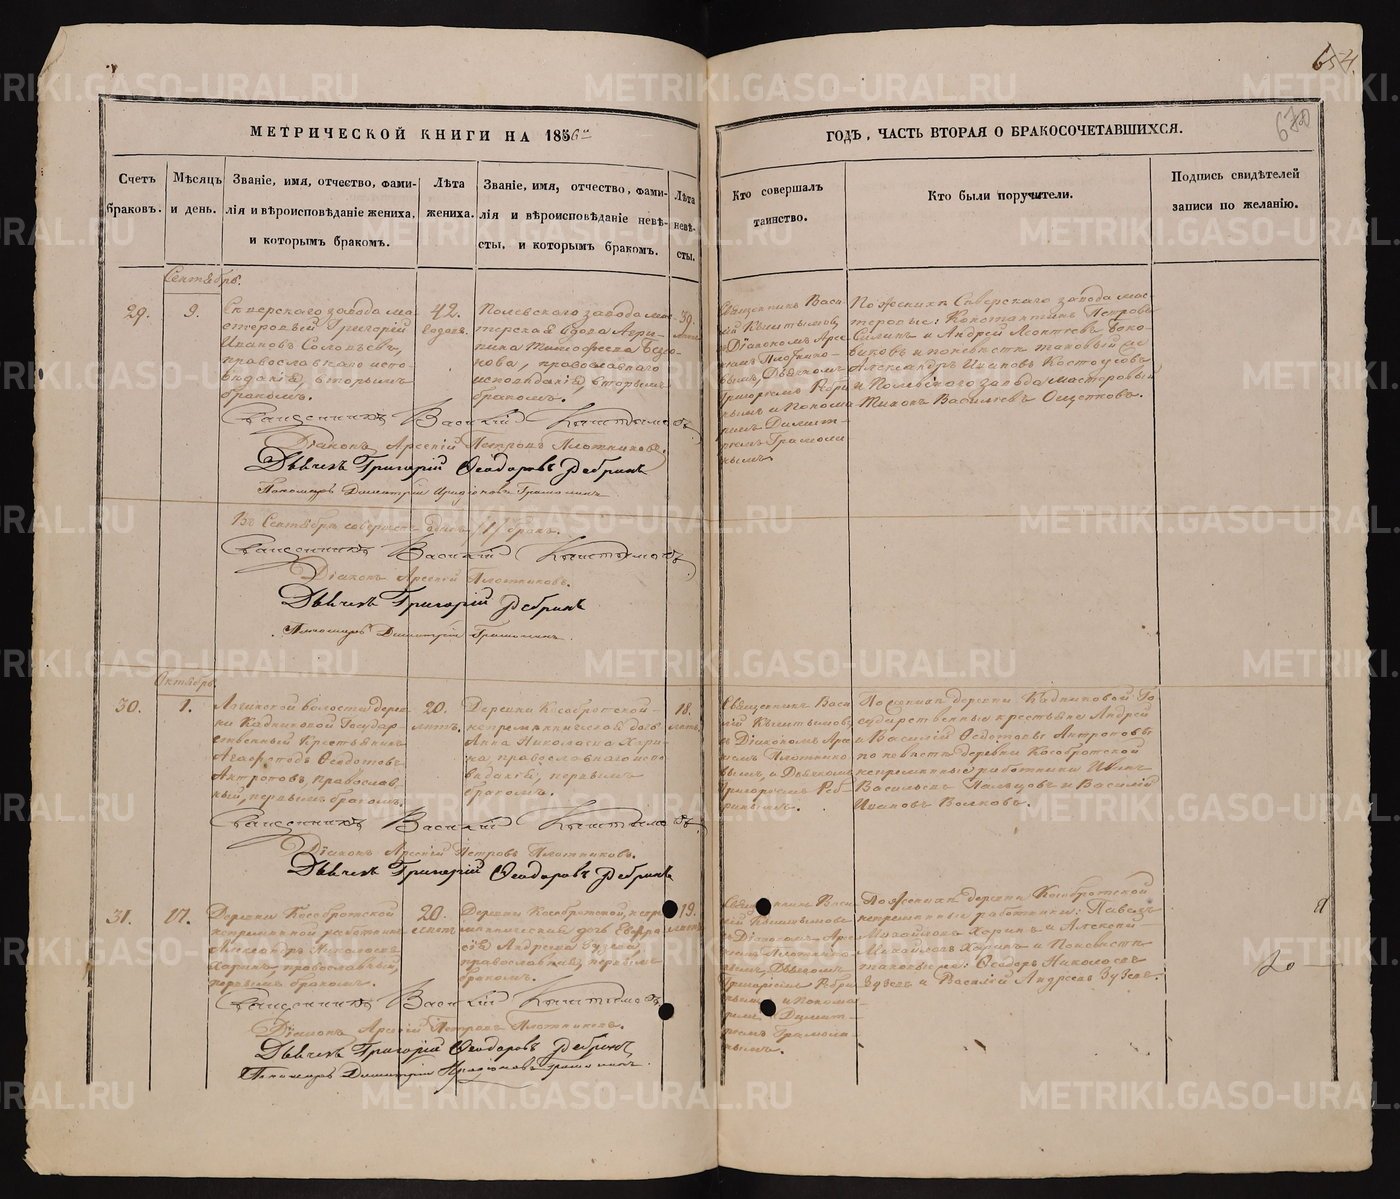 654.
670
МЕТРИЧЕСКОЙ КНИГИ НА 1856й
ГОДЪ, ЧАСТЬ ВТОРАЯ О БРАКОСОЧЕТАВШИХСЯ.
Счетъ браковъ.
Мѣсяцъ и день.
Званіе, имя, отчество, фами-
лія и вѣроисповѣданіе жениха,
и которымъ бракомъ.
Лѣта жениха.
Званіе, имя, отчество, фами-
лія и вѣроисповѣданіе невѣ-
сты, и которымъ бракомъ.
Лѣта невѣ-
сты.
Кто совершалъ
таинство.
Кто были поручители.
Подпись свидѣтелей
записи по желанію.
Сентябрь.
29.
9.
Сѣверскаго завода ма-
стеровый Григорій
Ивановъ Соловьевъ,
православнаго испо-
вѣданія, вторымъ
бракомъ.
42.
годовъ.
Полевскаго завода ма-
стерская вдова Агри-
пина Тимофеева
православнаго
исповѣданія, вторымъ
бракомъ.
39.
лѣтъ
Священникъ Васи-
лій Кыштымовъ,
съ Діакономъ Арсе-
ніемъ Плотнико-
вымъ, Дьячкомъ
Григоріемъ Ребри-
нымъ и Понома-
ремъ Димит-
ріемъ Грамоли-
нымъ.
По женихѣ Сѣверскаго завода мас-
теровые: Константинъ Петровъ
и Андрей
и по невѣстѣ таковый же
Александръ Ивановъ Костоусовъ
и Полевскаго завода мастеровый
Тихонъ Васильевъ Ощепковъ.
Священникъ Василій Кыштымовъ.
Діаконъ Арсеній Петровъ Плотниковъ.
Дьячекъ Григорій Ѳеодоровъ Ребринъ
Пономарь Димитрій Грамолинъ.
Въ Сентябрѣ совершенъ одинъ /1/ бракъ.
Священникъ Василій Кыштымовъ.
Діаконъ Арсеній Плотниковъ.
Дьячекъ Григорій Ребринъ
Пономарь Димитрій Грамолинъ.
Октябрь.
30.
1.
волости дерев-
ни Кадниковой Государ-
ственный Крестьянинъ
Ѳедотовъ
Антроповъ, православ-
ный, первымъ бракомъ.
20.
лѣтъ.
Деревни Кособродской
непремѣнническая дочь
Анна Николаева Хари-
на, православнаго испо-
вѣданія, первымъ
бракомъ.
18.
лѣтъ
Священникъ Васи-
лій Кыштымовъ
съ Діакономъ Арсе-
ніемъ Плотнико-
вымъ, и Дьячкомъ
Григоріемъ Реб-
ринымъ.
По женихѣ деревни Кадниковой Го-
сударственные крестьяне Андрей
и Василій Ѳедотовы Антроповы
по невѣстѣ деревни Кособродской
непремѣнные работники Иванъ
Васильевъ Пальцовъ и Василій
Ивановъ Волковъ.
Священникъ Василій Кыштымовъ.
Діаконъ Арсеній Петровъ Плотниковъ.
Дьячекъ Григорій Ѳеодоровъ Ребринъ
31.
17.
Деревни Кособродской
непремѣнный работникъ
Александръ Николаевъ
Харинъ, православный,
первымъ бракомъ.
20.
лѣтъ.
Деревни Кособродской, непре-
мѣнническая дочь Евфра-
сія Андреева Зуева,
православная, первымъ
бракомъ.
19.
лѣтъ
Священникъ Васи-
лій Кыштымовъ
съ Діакономъ Арсе-
ніемъ Плотнико-
вымъ, Дьячкомъ
Григоріемъ Ребри-
нымъ и Понома-
ремъ Димит-
ріемъ Грамоли-
нымъ.
По женихѣ деревни Кособродской
непремѣнные работники: Павелъ
Михайловъ Харинъ и Алексѣй
Михайловъ Харинъ и по невѣстѣ
таковые же: Ѳеодоръ Николаевъ
Зуевъ и Василій Андреевъ Зуевъ.
Священникъ Василій Кыштымовъ
Діаконъ Арсеній Петровъ Плотниковъ.
Дьячекъ Григорій Ѳеодоровъ Ребринъ,
Пономарь Димитрій Грамолинъ.
METRIKI.GASO-URAL.RU